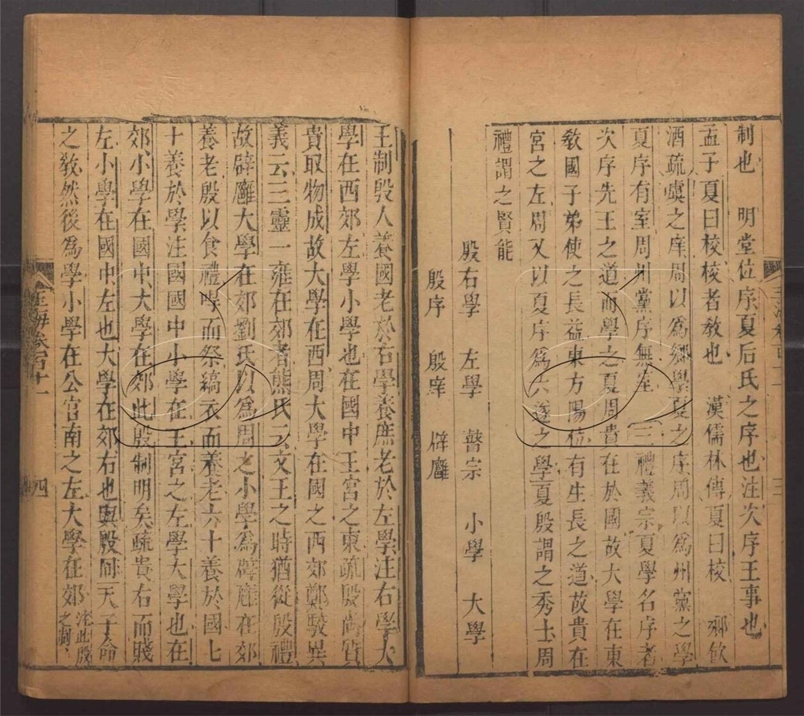 制也　明堂位序夏后氏之序也注次序王事也
孟子夏曰校校者教也　漢儒林傳夏曰校　鄉飲
酒疏虞之庠周以為鄉學夏之序周以為州黨之學
夏序有室周州黨序無室　三禮義宗夏學名序者
次序先王之道而學之夏周貴在於國故大學在東
教國子弟使之長益東方陽位有生長之道故貴在
宮之左周又以夏序為六遂之學夏殷謂之秀士周
禮謂之賢能
殷右學　左學　瞽宗　小學　大學
殷序　殷庠　辟廱
王制殷人養國老於右學養庶老於左學注右學大
學在西郊左學小學也在國中王宮之東疏殷尚質
貴取物成故大學在西周大學在國之西郊鄭駮異
義云三靈一雍在郊者熊氏云文王之時猶從殷禮
故辟廱大學在郊劉氏以為周之小學為辟廱在郊
養老殷以食禮冔而祭縞衣而養老六十養於國七
十養於學注國國中小學在王宮之左學大學也在
郊小學在國中大學在郊此殷制明矣疏貴右而賤
左小學在國中左也大學在郊右也與殷同天子命
之教然後為學小學在公宮南之左大學在郊注此殷之制
玉海卷百十一
四